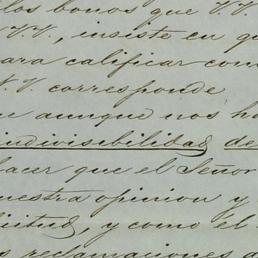 los bonos que V.V.
V.V., insiste en q
ara calificar com
V.V. corresponde
e aunque nos h
indivisibilidad de
hacer que el Señor
uestra opinion y
icitud, y como él
s reclamaciones d